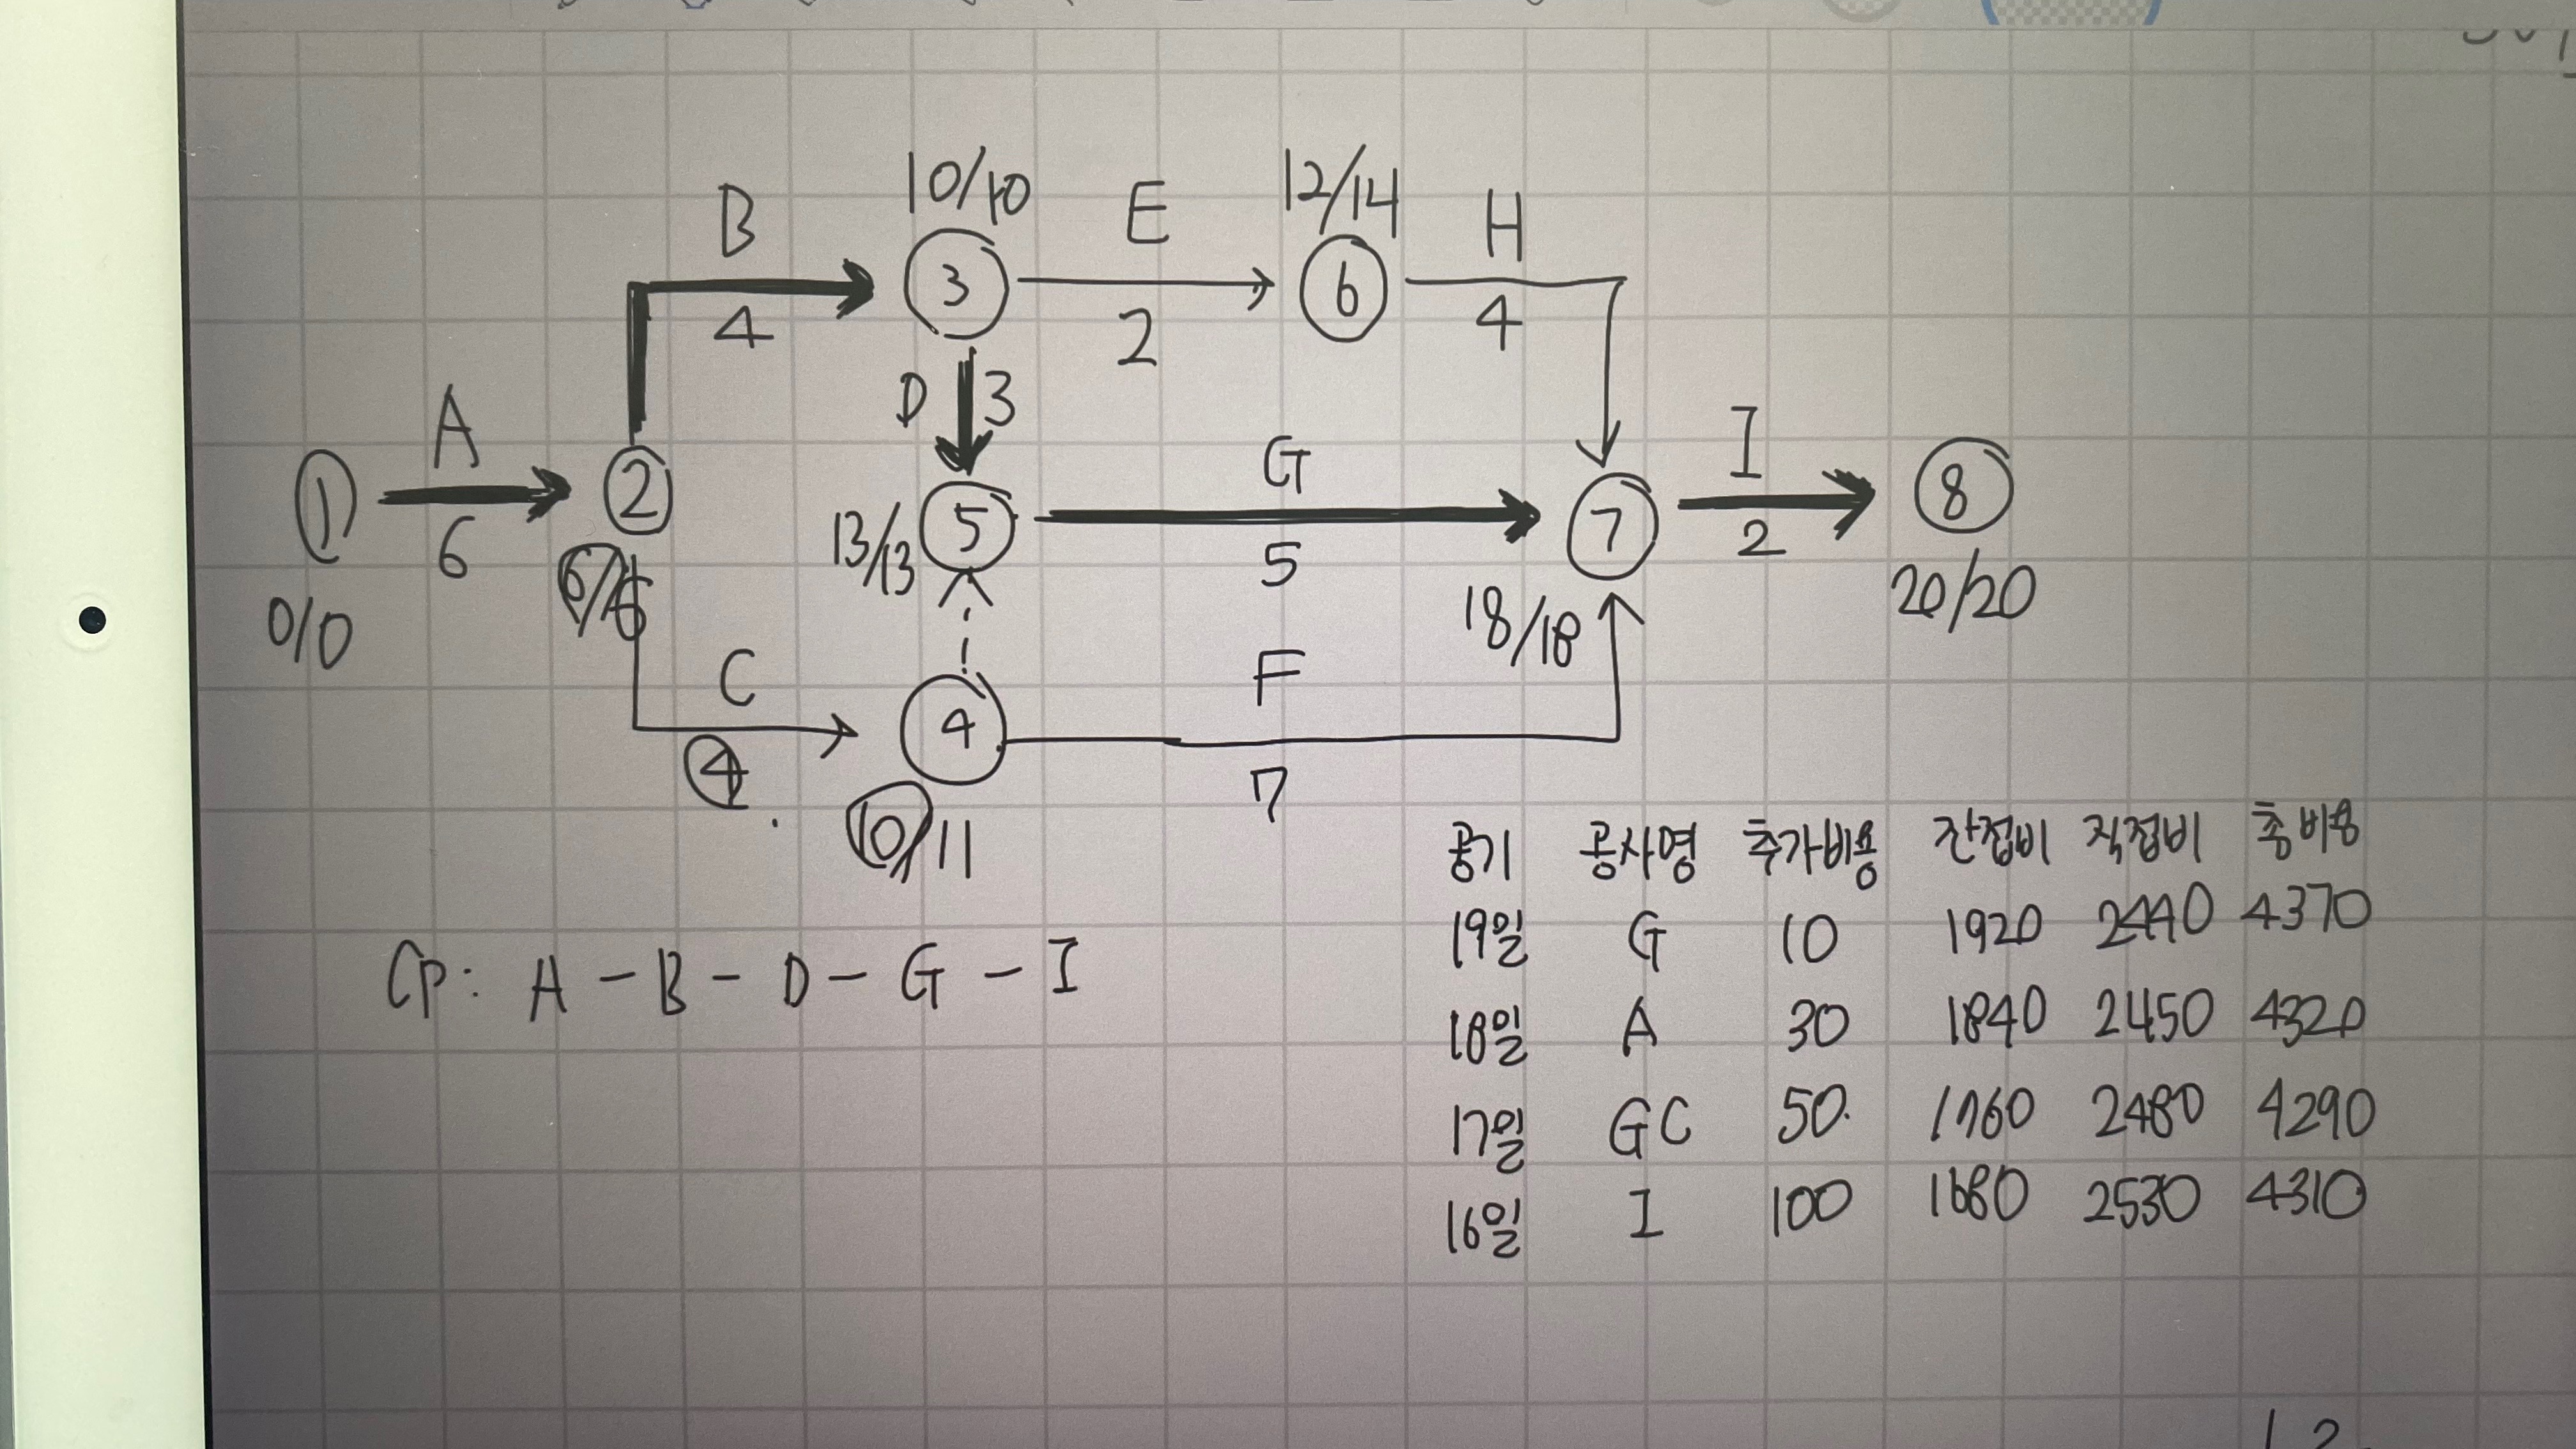 B 10/10 E 12/14 H
3 6
4 2 4
A D 3 G I
1 2 13/13 5 7 8
6 5 2
0/0 6/6 18/18 20/20
C F
4 4 7
10/11
CP: A - B - D - G - I
공기 공사명 추가비용 간접비 직접비 총비용
19일 G 10 1920 2440 4370
18일 A 30 1840 2450 4320
17일 GC 50 1760 2480 4290
16일 I 100 1680 2530 4310